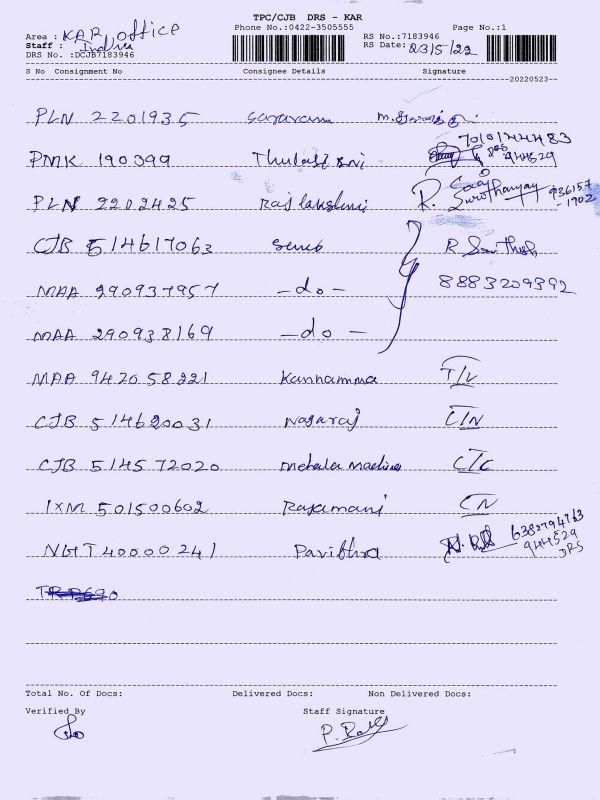 TPC/CJB DRS - KAR
Phone No.:0422-3505555 Page No.:1
Area : KAR office
Staff : Indhu
DRS No. :DCJB7183946
RS No.:7183946
RS Date: 23/5/22
S No Consignment No Consignee Details Signature
20220523
PLN 2201935 Saravana
PMK 190399 Thulasi Sri 7010144483 944529
PLN 2202425 Rajlakshmi R. 936157-1902
CJB 514617063 R Sathish
MAA 290937957 -do- 8883209392
MAA 290938169 -do-
MAA 942058221 Kannamma T/L
CJB 514620031 Nagaraj C/N
CJB 514572020 Mekala Machine C/C
IXM 501500602 Rajamani CN
NGT 40000241 Pavithra 6382794763 944529 DRS
Total No. Of Docs: Delivered Docs: Non Delivered Docs:
Verified By Staff Signature